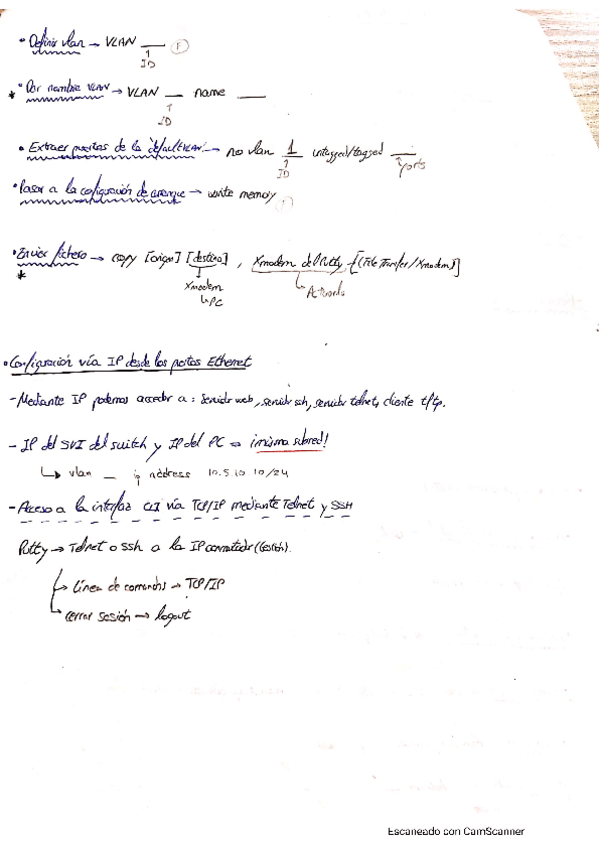 • Definir vlan → VLAN ___ (1)
ID
* • Dar nombre VLAN → VLAN __ name ___
ID
• Extraer puertos de la defaultVLAN → no vlan 1 untagged/tagged __
ID
Ports
• Pasar a la configuración de arranque → write memory
• Enviar fichero → copy [origen] [destino], Xmodem del Putty [(File Transfer/Xmodem)]
*
Xmodem
↳ PC
↳ Activarlo
• Configuración vía IP desde los puertos Ethernet
- Mediante IP podemos acceder a: servidor web, servidor ssh, servidor telnet, cliente tftp.
- IP del SVI del switch y IP del PC ⇒ ¡misma subred!
↳ vlan __ ip address 10.5.10 10/24
- Acceso a la interfaz CLI vía TCP/IP mediante Telnet y SSH
Putty → Telnet o SSH a la IP conmutador (Gestión).
↳ línea de comandos → TCP/IP
↳ cerrar sesión → logout
Escaneado con CamScanner